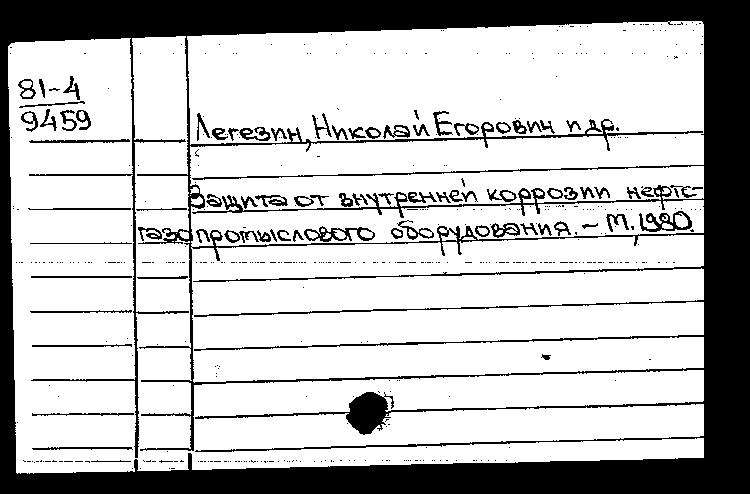 81-4
9459
Легезин, Николай Егорович и др.
Защита от внутренней коррозии нефте-
газопромыслового оборудования. - М., 1980.